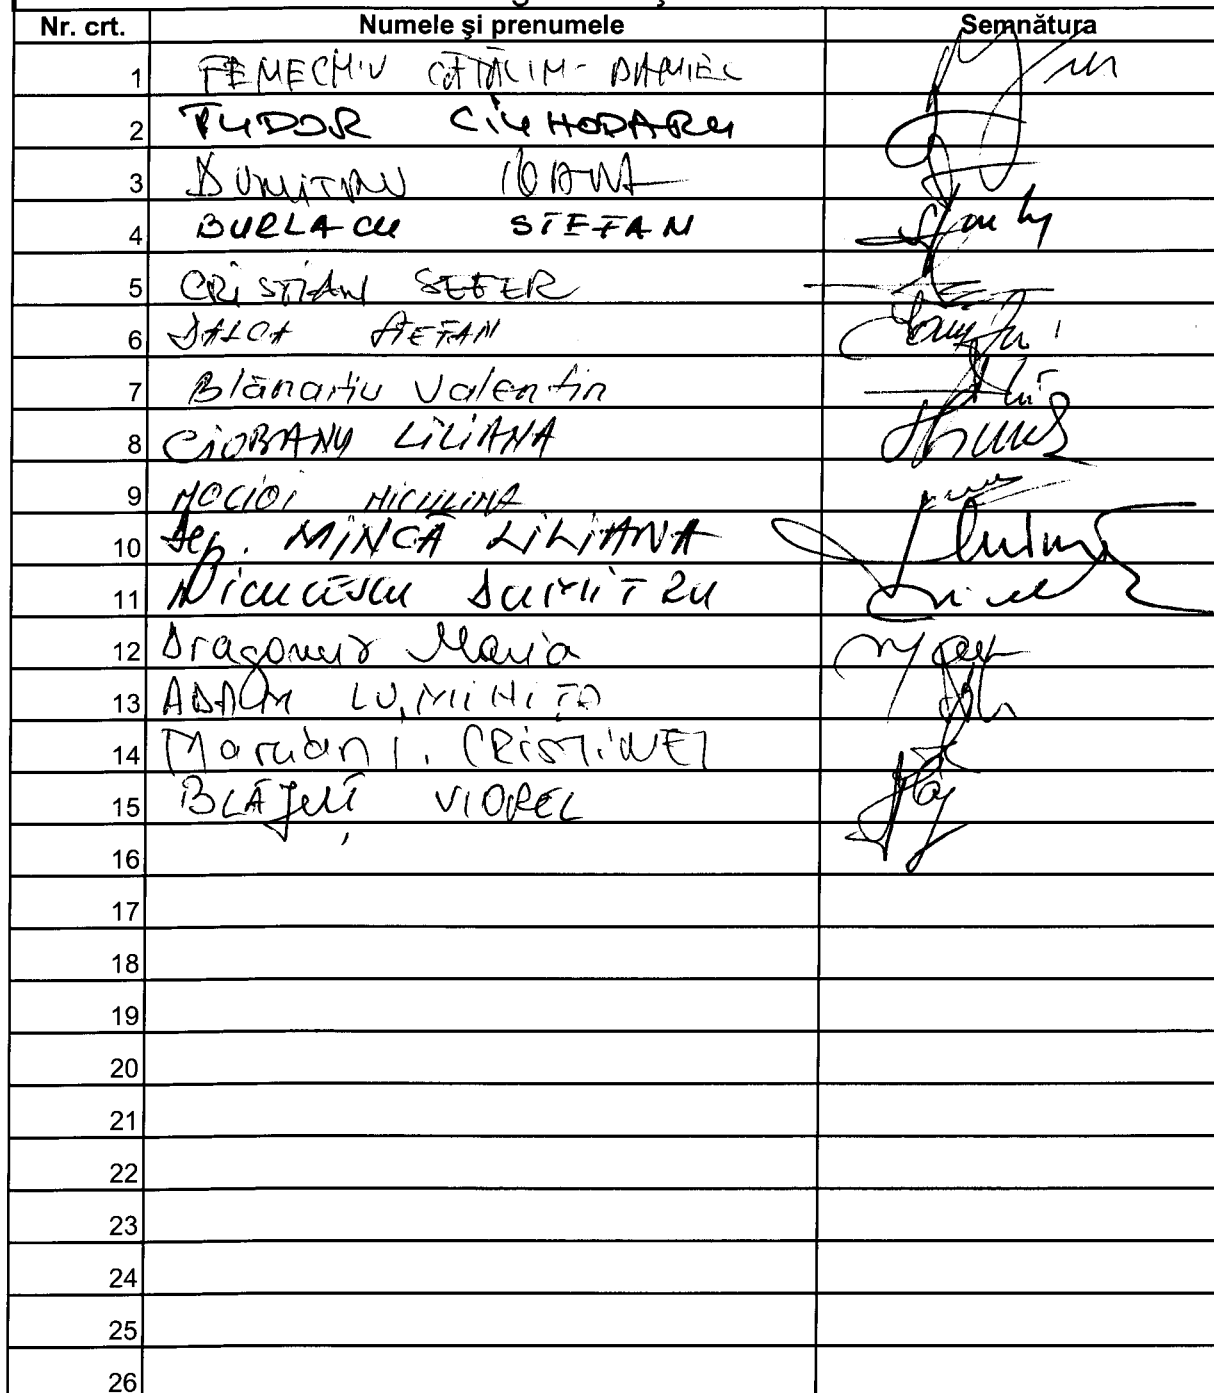 Nr. crt. Numele şi prenumele Semnătura
1 FENECHIU CĂTĂLIN-DANIEL
2 TUDOR CIUHODARU
3 DUMITRU IOANA
4 BURLACU STEFAN
5 CRISTIAN SEFER
6 DALCA STEFAN
7 Blănariu Valentin
8 CIOBANU LILIANA
9 MOCIOI NICULINA
10 Dep. MINCĂ LILIANA
11 NICULESCU DUMITRU
12 Dragomir Maria
13 ADAM LUMINITA
14 Marian I. CRISTINEL
15 VIOREL
16
17
18
19
20
21
22
23
24
25
26